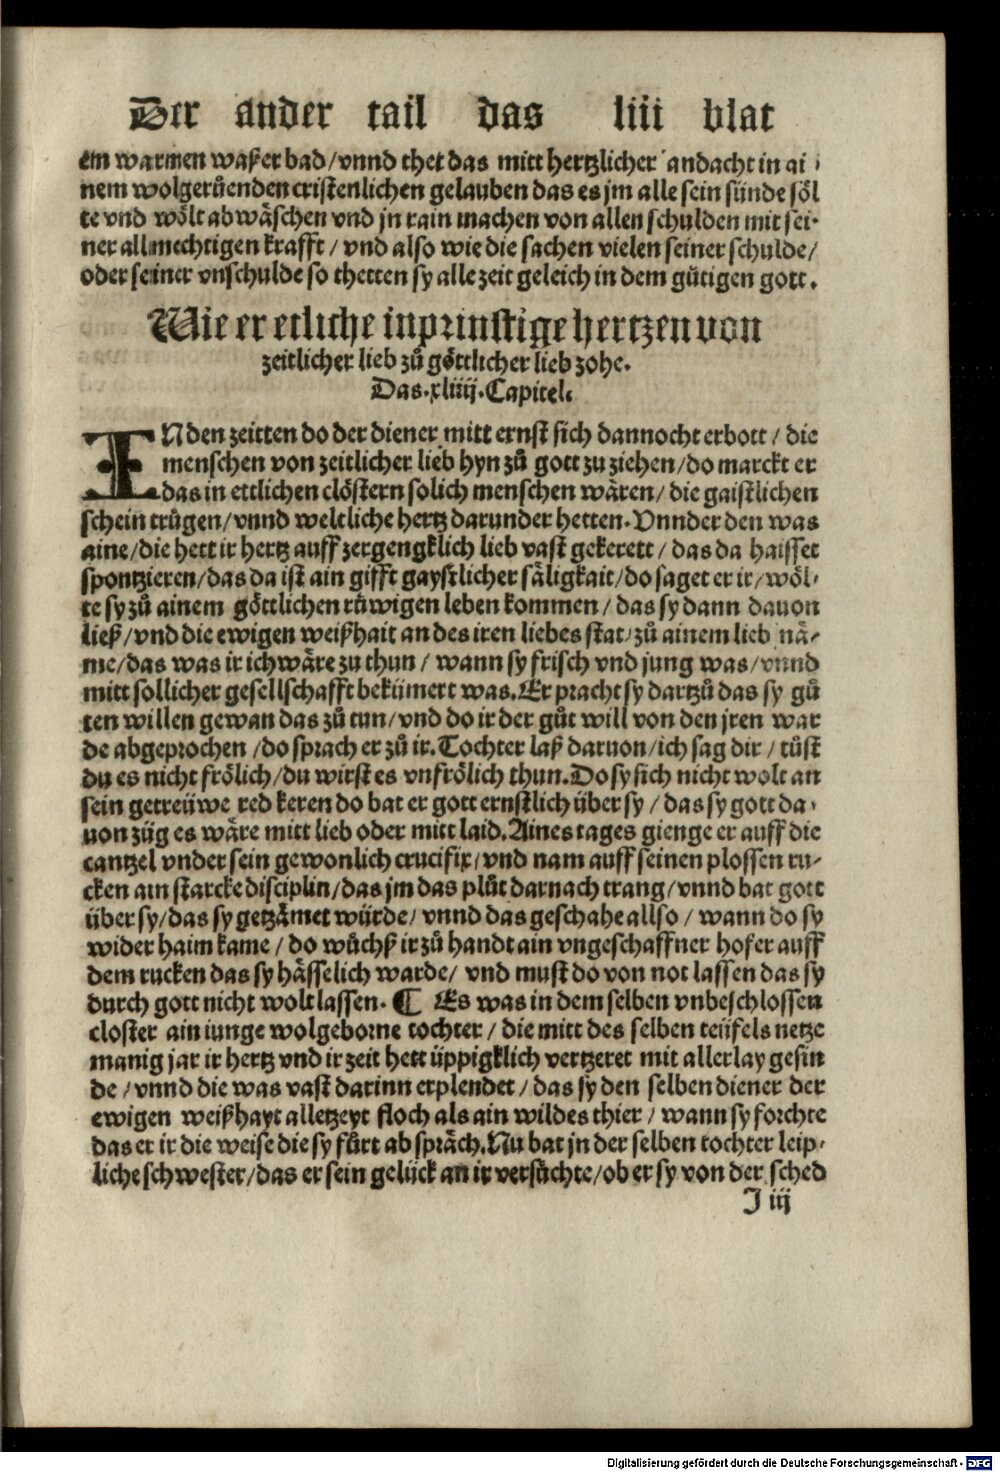 Der ander tail das liii blat
em warmen waſſer bad/vnnd thet das mitt hertzlicher andacht in ai⸗
nem wolgerůenden criſtenlichen gelauben das es jm alle ſein ſünde ſöl
te vnd wölt abwäſchen vnd jn rain machen von allen ſchulden mit ſei⸗
ner allmechtigen krafft / vnd alſo wie die ſachen vielen ſeiner ſchulde/
oder ſeiner vnſchulde ſo thetten ſy alle zeit geleich in dem gůtigen gott.
Wie er etliche inprinſtige hertzen von
zeitlicher lieb zů göttlicher lieb zohe.
Das .xliiij. Capitel.
IN den zeitten do der diener mitt ernſt ſich dannocht erbott / die
menſchen von zeitlicher lieb hyn zů gott zu ziehen/do marckt er
das in ettlichen clöſtern ſolich menſchen wären/ die gaiſtlichen
ſchein trůgen/vnnd weltliche hertz darunder hetten. Vnnder den was
aine/die hett ir hertz auff zergengklich lieb vaſt gekerett / das da haiſſet
ſpontzieren/das da iſt ain gifft gayſtlicher ſäligkait/do ſaget er ir/wöl⸗
te ſy zů ainem göttlichen růwigen leben kommen / das ſy dann dauon
ließ/vnd die ewigen weißhait an des iren liebes ſtat/zů ainem lieb nä⸗
me/das was ir ichwäre zu thun / wann ſy friſch vnd jung was/vnnd
mitt ſollicher geſellſchafft bekümert was. Er pracht ſy dartzů das ſy gů
ten willen gewan das zů tun/vnd do ir der gůt will von den jren war
de abgeprochen /do ſprach er zů ir. Tochter laß daruon/ich ſag dir / tůſt
du es nicht frölich/du wirſt es vnfrölich thun. Do ſy ſich nicht wolt an
ſein getreüwe red keren do bat er gott ernſtlich über ſy / das ſy gott da⸗
uon züg es wäre mitt lieb oder mitt laid. Aines tages gienge er auff die
cantzel vnder ſein gewonlich crucifix/vnd nam auff ſeinen ploſſen ru⸗
cken ain ſtarcke diſciplin/das jm das plůt darnach trang/vnnd bat gott
über ſy/das ſy getzämet würde/ vnnd das geſchahe allſo / wann do ſy
wider haim kame / do wůchß ir zů handt ain vngeſchaffner hofer auff
dem rucken das ſy häſſelich warde/ vnd muſt do von not laſſen das ſy
durch gott nicht wolt laſſen. ¶ Es was in dem ſelben vnbeſchloſſen
cloſter ain iunge wolgeborne tochter / die mitt des ſelben teüfels netze
manig jar ir hertz vnd ir zeit hett üppigklich vertzeret mit allerlay geſin
de / vnnd die was vaſt darinn erplendet / das ſy den ſelben diener der
ewigen weißhayt alletzeyt floch als ain wildes thier / wann ſy forchte
das er ir die weiſe die ſy fůrt ab ſpräch. Nu bat jn der ſelben tochter leip⸗
liche ſchweſter/das er ſein gelück an ir verſůchte/ob er ſy von der ſched
J iij
Digitalisierung gefördert durch die Deutsche Forschungsgemeinschaft - DFG